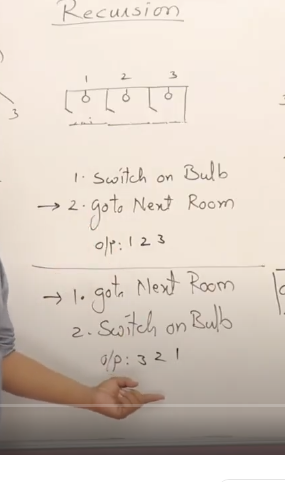 Recursion
1 2 3
3
1. Switch on Bulb
→ 2. goto Next Room
o/p: 1 2 3
→ 1. goto Next Room
2. Switch on Bulb
o/p: 3 2 1